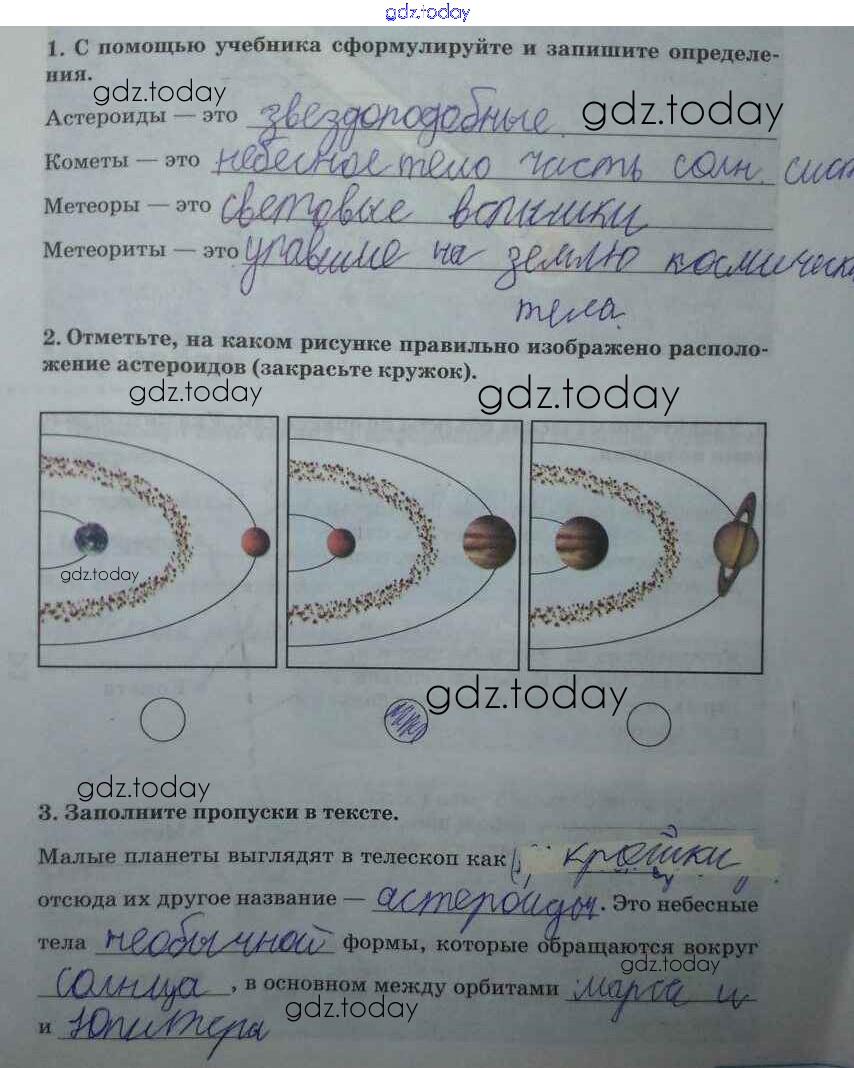 gdz.today
1. С помощью учебника сформулируйте и запишите определе-
ния.
gdz.today
gdz.today
Астероиды — это звездоподобные.
Кометы — это небесное тело часть солн. сист
Метеоры — это световые вспышки
Метеориты — это упавшие на землю космически
тела.
2. Отметьте, на каком рисунке правильно изображено располо-
жение астероидов (закрасьте кружок).
gdz.today
gdz.today
gdz.today
gdz.today
gdz.today
3. Заполните пропуски в тексте.
Малые планеты выглядят в телескоп как крошки
отсюда их другое название — астероиды. Это небесные
тела необычной формы, которые обращаются вокруг
gdz.today
солнца, в основном между орбитами марса и
gdz.today
и Юпитера